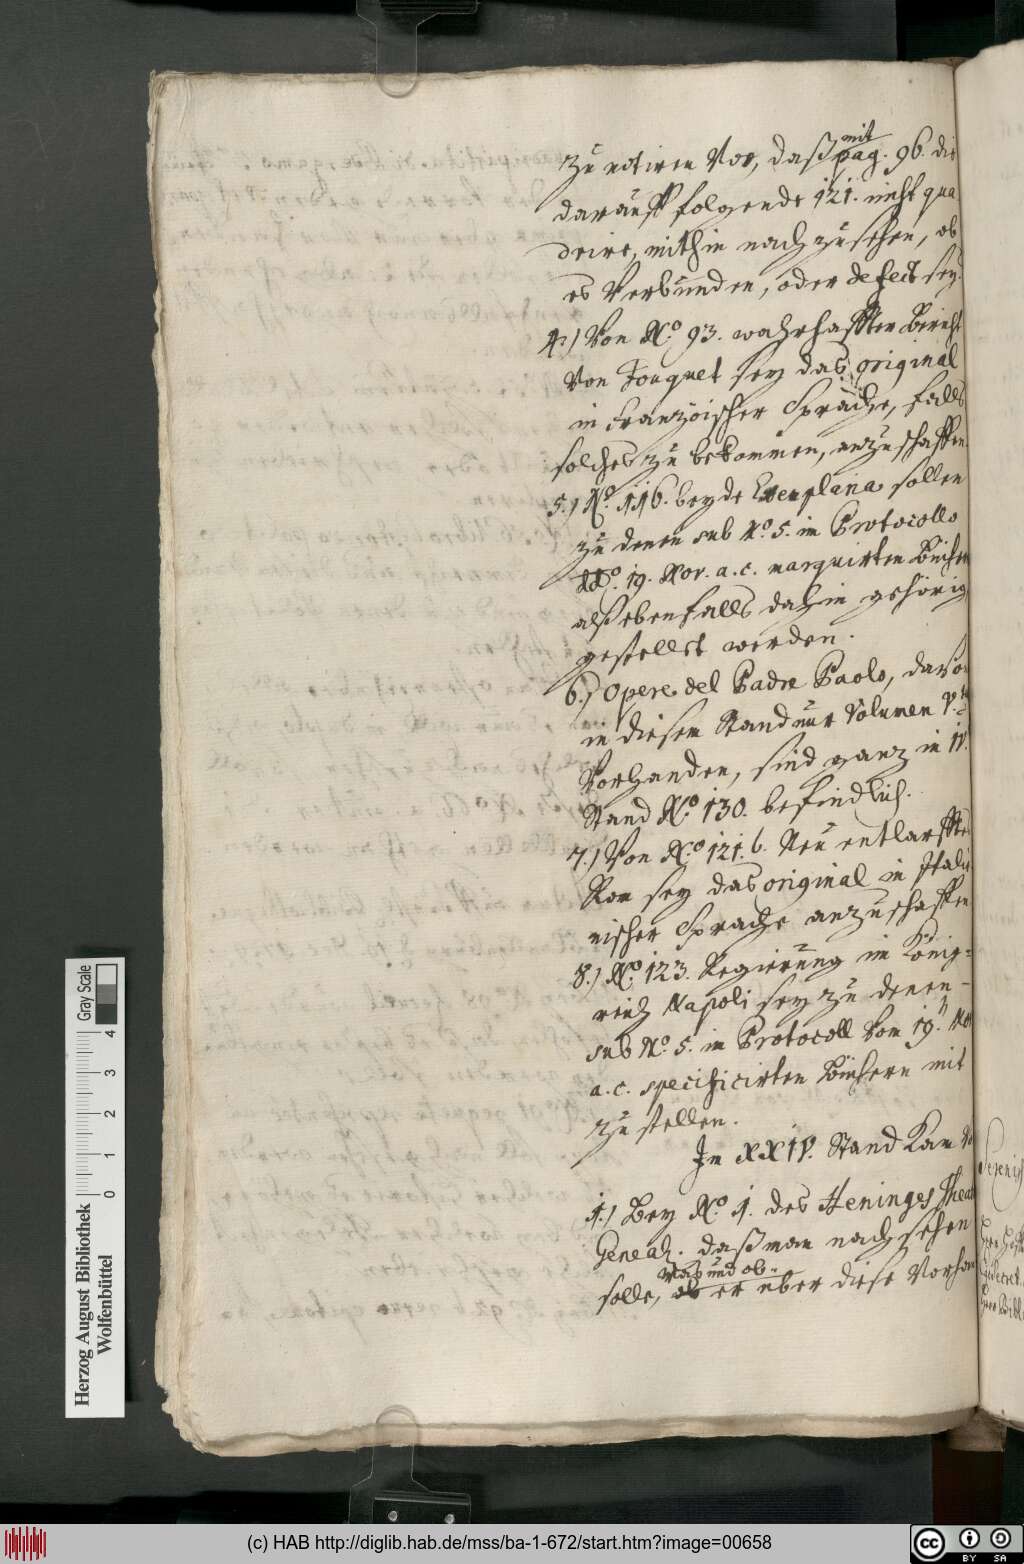 mit
zu notiren vor, daß pag. 96. die
darauff folgende 121. nicht qua
drire, mithin nachzusehen, ob
es verbunden, oder defect sey.
4.) Von No. 93. wahrhafften Bericht
von Fouquet sey das original
in Französischer Sprache, falls
solches zu bekommen, anzuschaffen
5.) No. 116. beyde Exemplaria sollen
zu denen sub No. 5. in Protocollo
ddo. 19. Nov. a. c. marquirten Büchern
alß ebenfalls dahin gehörig
gestellet werden.
6.) Opere del Padre Paolo, davon
in diesem Stand nur Volumen V.
vorhanden, sind ganz in IV.
Stand No. 130. befindlich.
7.) Von No. 121. b. Neu entlarfftes
Rom sey das original in Italiä
nischer Sprache anzuschaffen
8.) No. 123. Regierung im König-
reich Napoli sey zu denen
sub No. 5. in Protocoll vom 19. Nov
a. c. specificirten Büchern mit
zu stellen.
In XXIV. Stand kam
1.) Bey No. 1. des Heninges Theat
Geneal. daß man nachsehen
was und ob
solle, er über diese vorhan
Herzog August Bibliothek
Wolfenbüttel
0 1 2 3 4
Gray Scale
(c) HAB http://diglib.hab.de/mss/ba-1-672/start.htm?image=00658
cc BY SA